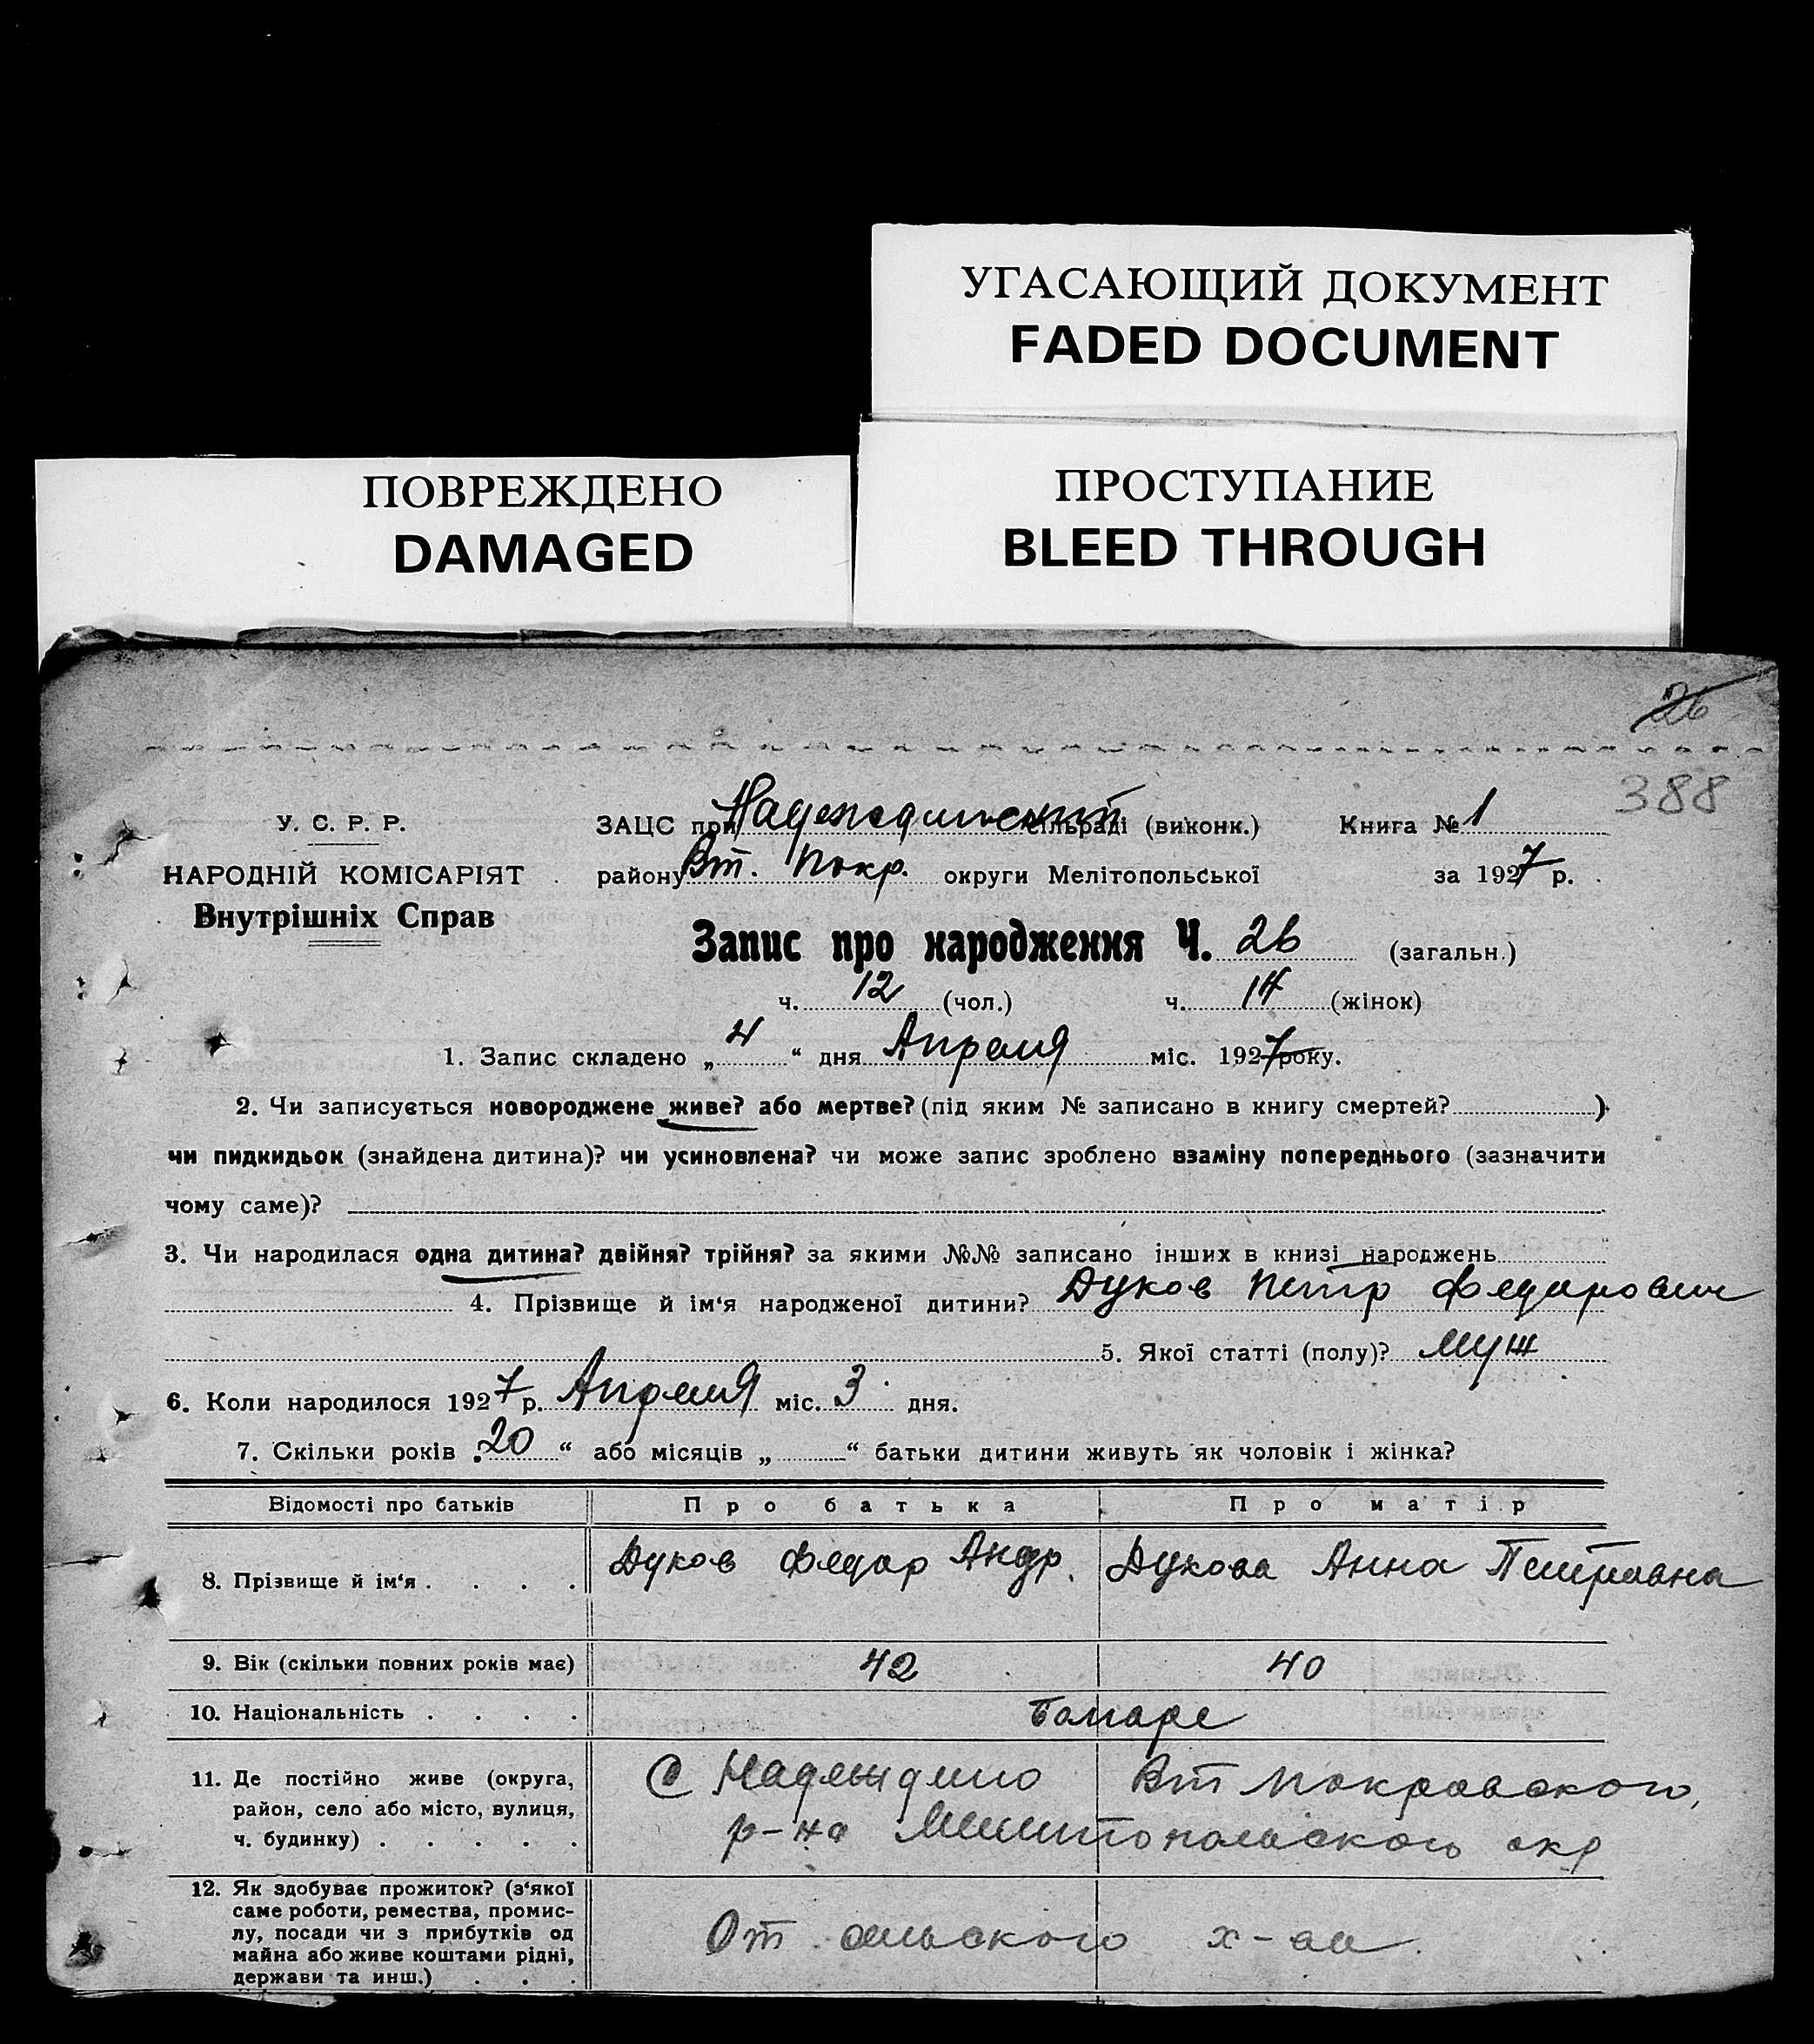 УГАСАЮЩИЙ ДОКУМЕНТ
FADED DOCUMENT
ПОВРЕЖДЕНО
DAMAGED
ПРОСТУПАНИЕ
BLEED THROUGH
26
388
У. С. Р. Р.
НАРОДНІЙ КОМІСАРІЯТ
Внутрішніх Справ
ЗАЦС при Надеждинский сільраді (виконк.) Книга № 1
району Вт. Покр. округи Мелітопольської за 1927 р.
Запис про народження Ч. 26 (загальн.)
ч. 12 (чол.) ч. 14 (жінок)
1. Запис складено „ 4 “ дня Апреля міс. 1927 року.
2. Чи записується новороджене живе? або мертве? (під яким № записано в книгу смертей? )
чи пидкидьок (знайдена дитина)? чи усиновлена? чи може запис зроблено взаміну попереднього (зазначити
чому саме)?
3. Чи народилася одна дитина? двійня? трійня? за якими №№ записано інших в книзі народжень
4. Прізвище й ім‘я народженої дитини? Дуков Петр Федорович
5. Якої статті (полу)? муж
6. Коли народилося 1927 р. Апреля міс. 3 дня.
7. Скільки років „ 20 “ або місяців „ “ батьки дитини живуть як чоловік і жінка?
Відомості про батьків Про батька Про матір
8. Прізвище й ім‘я . . . . Дуков Федор Андр. Дукова Анна Петровна
9. Вік (скільки повних років має) 42 40
10. Національність . . . . Болгаре
11. Де постійно живе (округа,
район, село або місто, вулиця,
ч. будинку) . . . . .
С Надеждино Вт Покровского,
р-на Мелитопольского окр
12. Як здобуває прожиток? (з‘якої
саме роботи, ремества, промис-
лу, посади чи з прибутків од
майна або живе коштами рідні,
держави та инш.) . . .
От сельского х-ва.